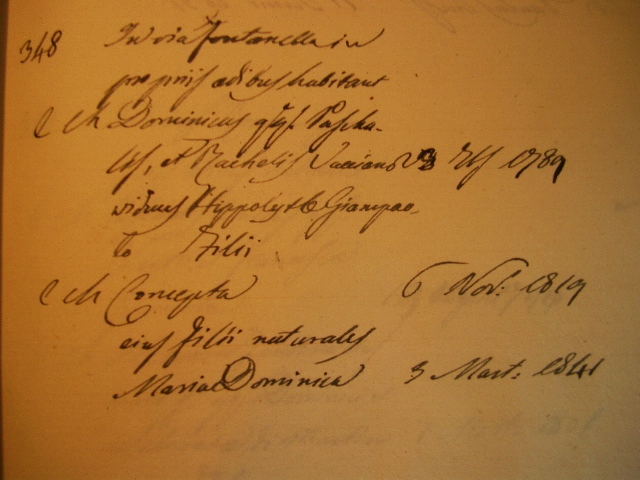 348 In via Fontanella in
proprijs ædibus habitant
C Ch Dominicus q.m Pascha-
lis, et Rachelis 1789
viduus Hippolytæ Giampao-
lo Filii
C Ch Concepta 6 Nov: 1819
eius filii naturales
Maria Dominica 3 Mart: 1841